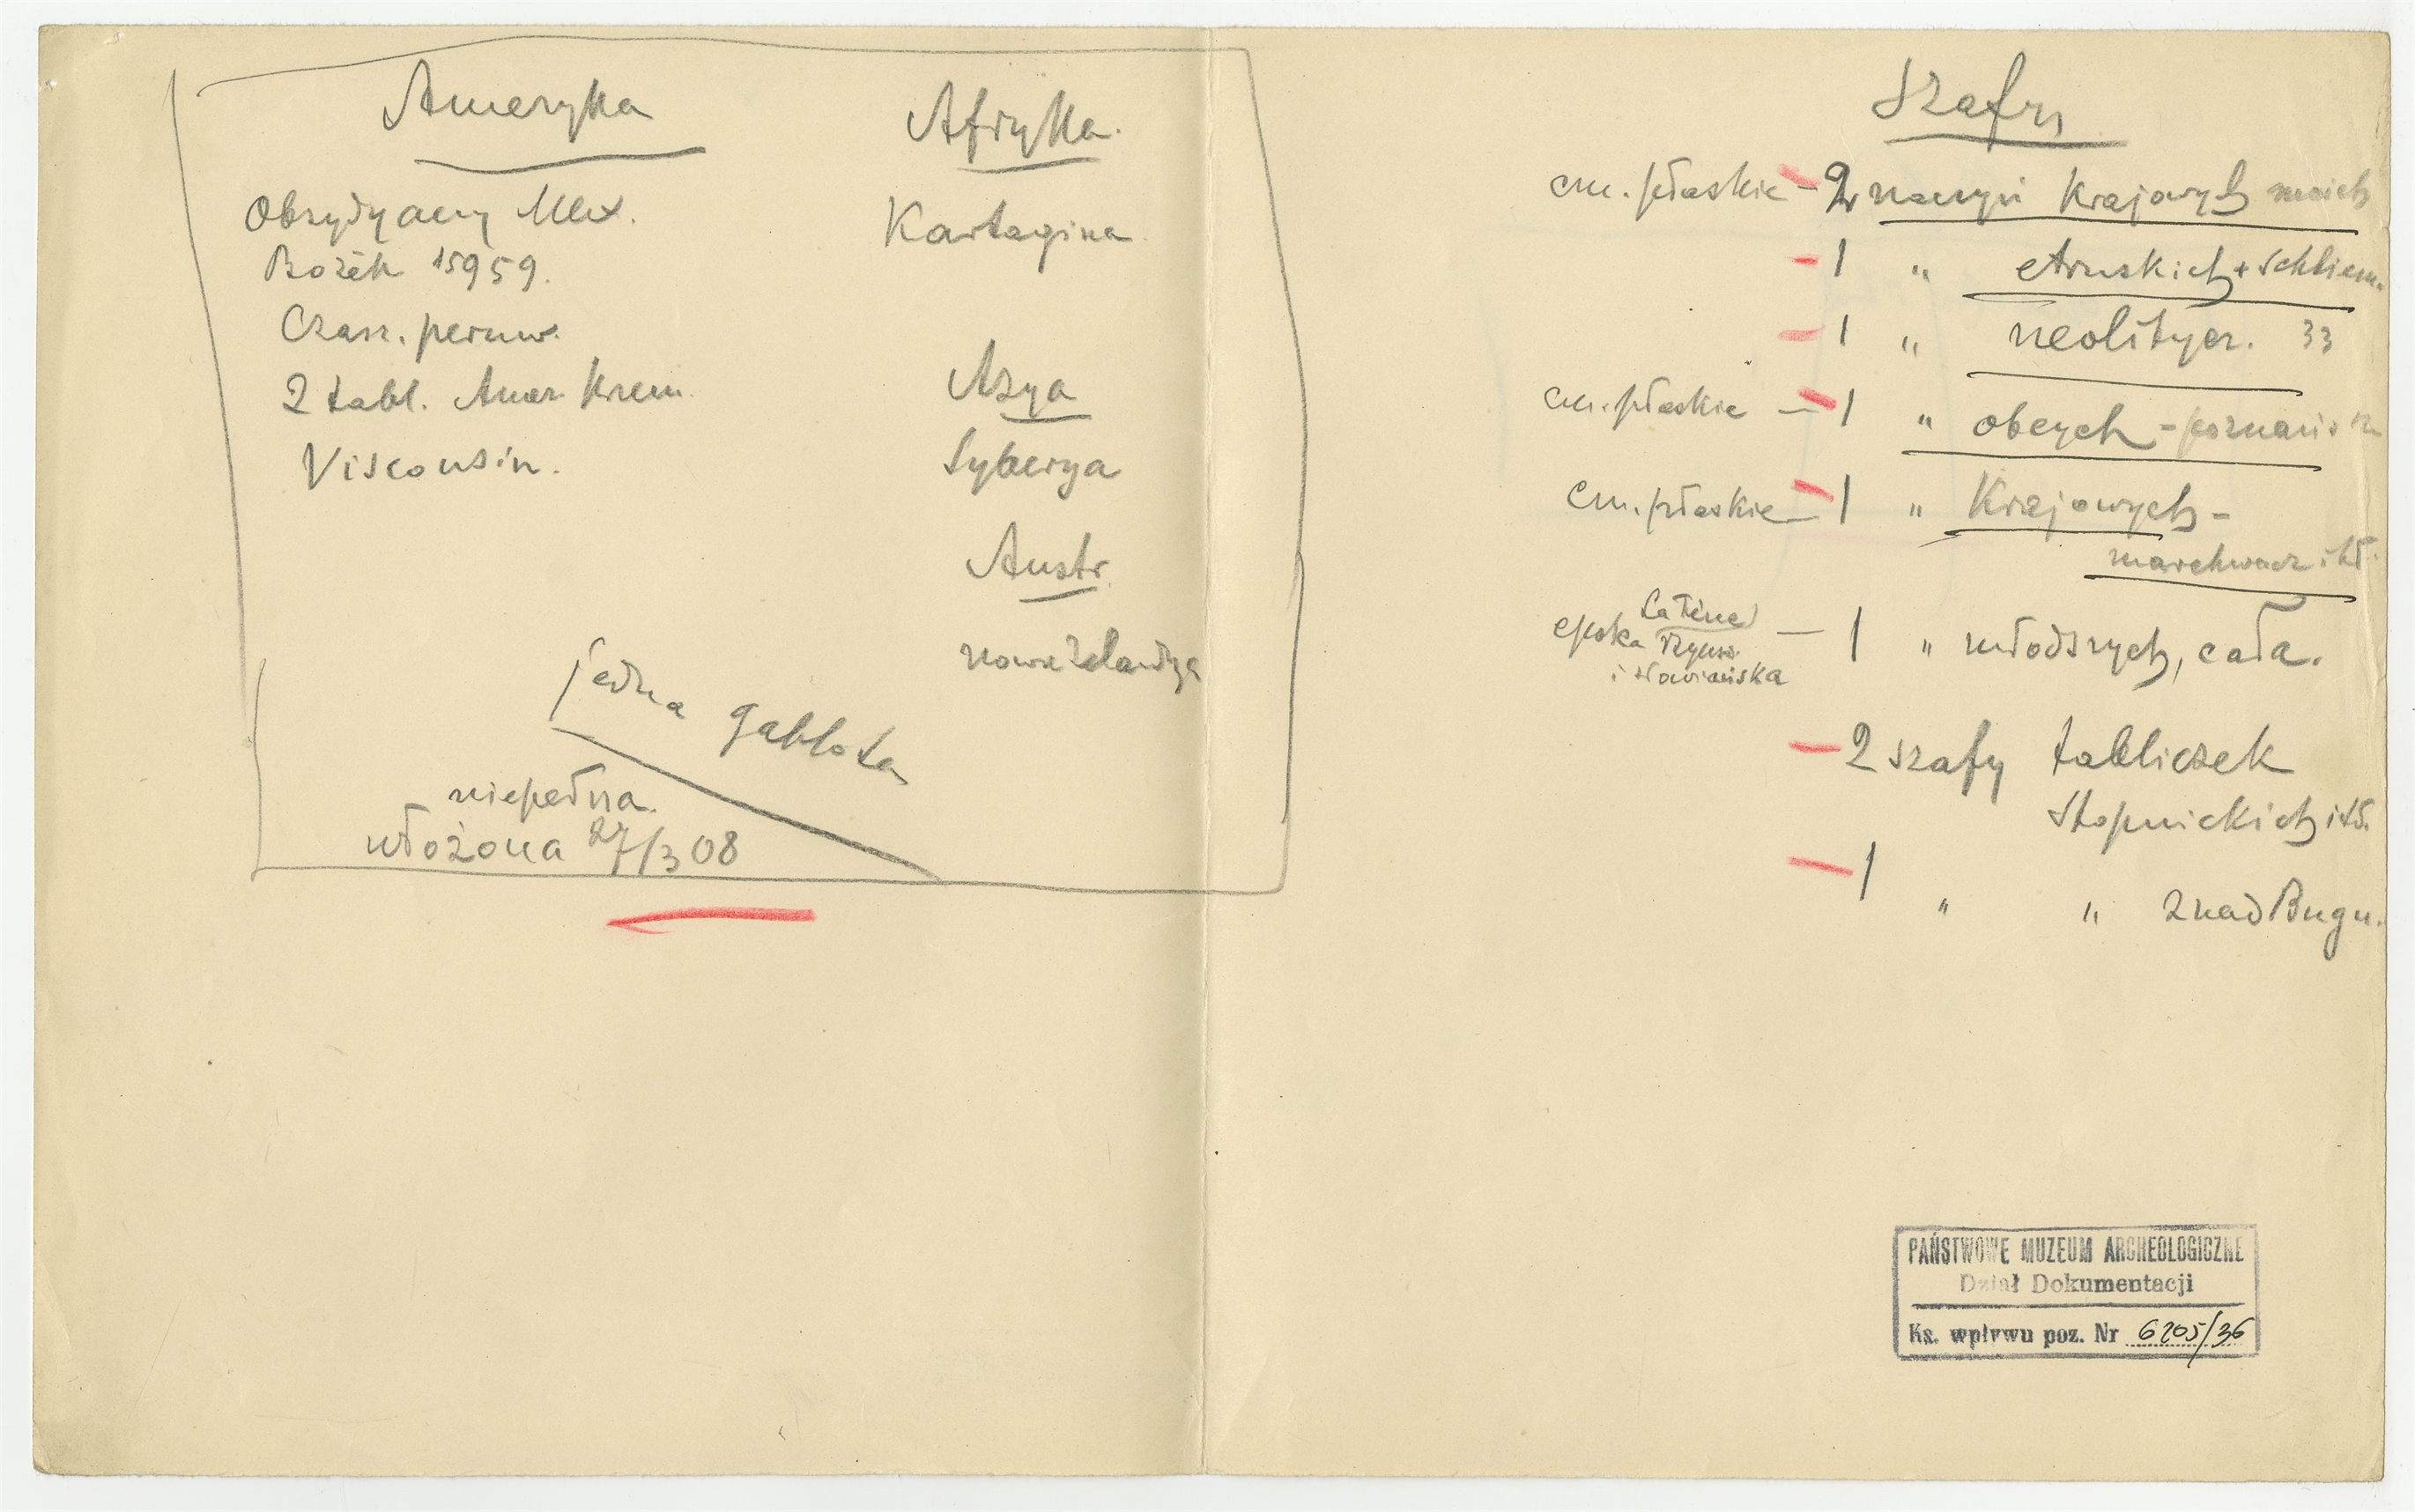 Ameryka
Obsydyany Mex.
Bożek 15959.
Czasz. peruw.
2 tabl. Amer. Krzem.
Visconsin.
Afryka.
Kartagina
Azya
Syberya
Austr.
nowa Zelandya
jedna gablota
niepełna.
ułożona 27/3 08
Szafy
cm. płaskie – 2 naczyń Krajowych moich
– 1 „ etruskich + Schliem.
– 1 „ neolitycz. 33
cm. płaskie – 1 „ obcych –
cm. płaskie – 1 „ Krajowych –
epoka La Tène Rzyms. i słowiańska – 1 „ młodszych, cała.
– 2 szafy tabliczek
Stopnickich itd.
– 1 „ „ znad Bugu.
PAŃSTWOWE MUZEUM ARCHEOLOGICZNE
Dział Dokumentacji
Ks. wpływu poz. Nr 6205/36